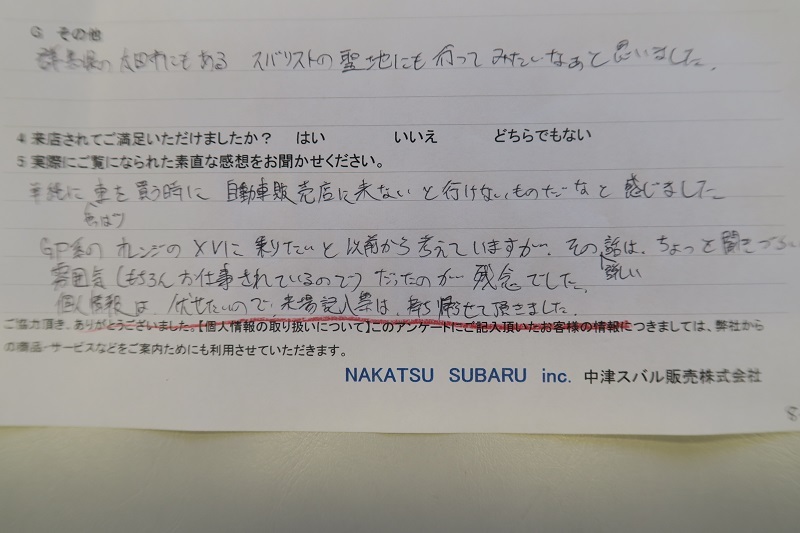 G その他
群馬県の太田市にもある スバリストの聖地にも行ってみたいなぁと思いました。
4 来店されてご満足いただけましたか? はい いいえ どちらでもない
5 実際にご覧になられた素直な感想をお聞かせください。
単純に車を買う時に 自動車販売店に来ないと行けないものだなと感じました
GP系のオレンジのXVに乗りたいと以前から考えていますが、その話は、ちょっと聞きづらい
難しい
雰囲気(もちろんお仕事されているので)だったのが残念でした。
個人情報は、伏せたいので、来場記入票は、持ち帰らせて頂きました。
ご協力頂き、ありがとうございました。【個人情報の取り扱いについて】このアンケートにご記入頂いたお客様の情報につきましては、弊社から
の商品・サービスなどをご案内ためにも利用させていただきます。
NAKATSU SUBARU inc. 中津スバル販売株式会社